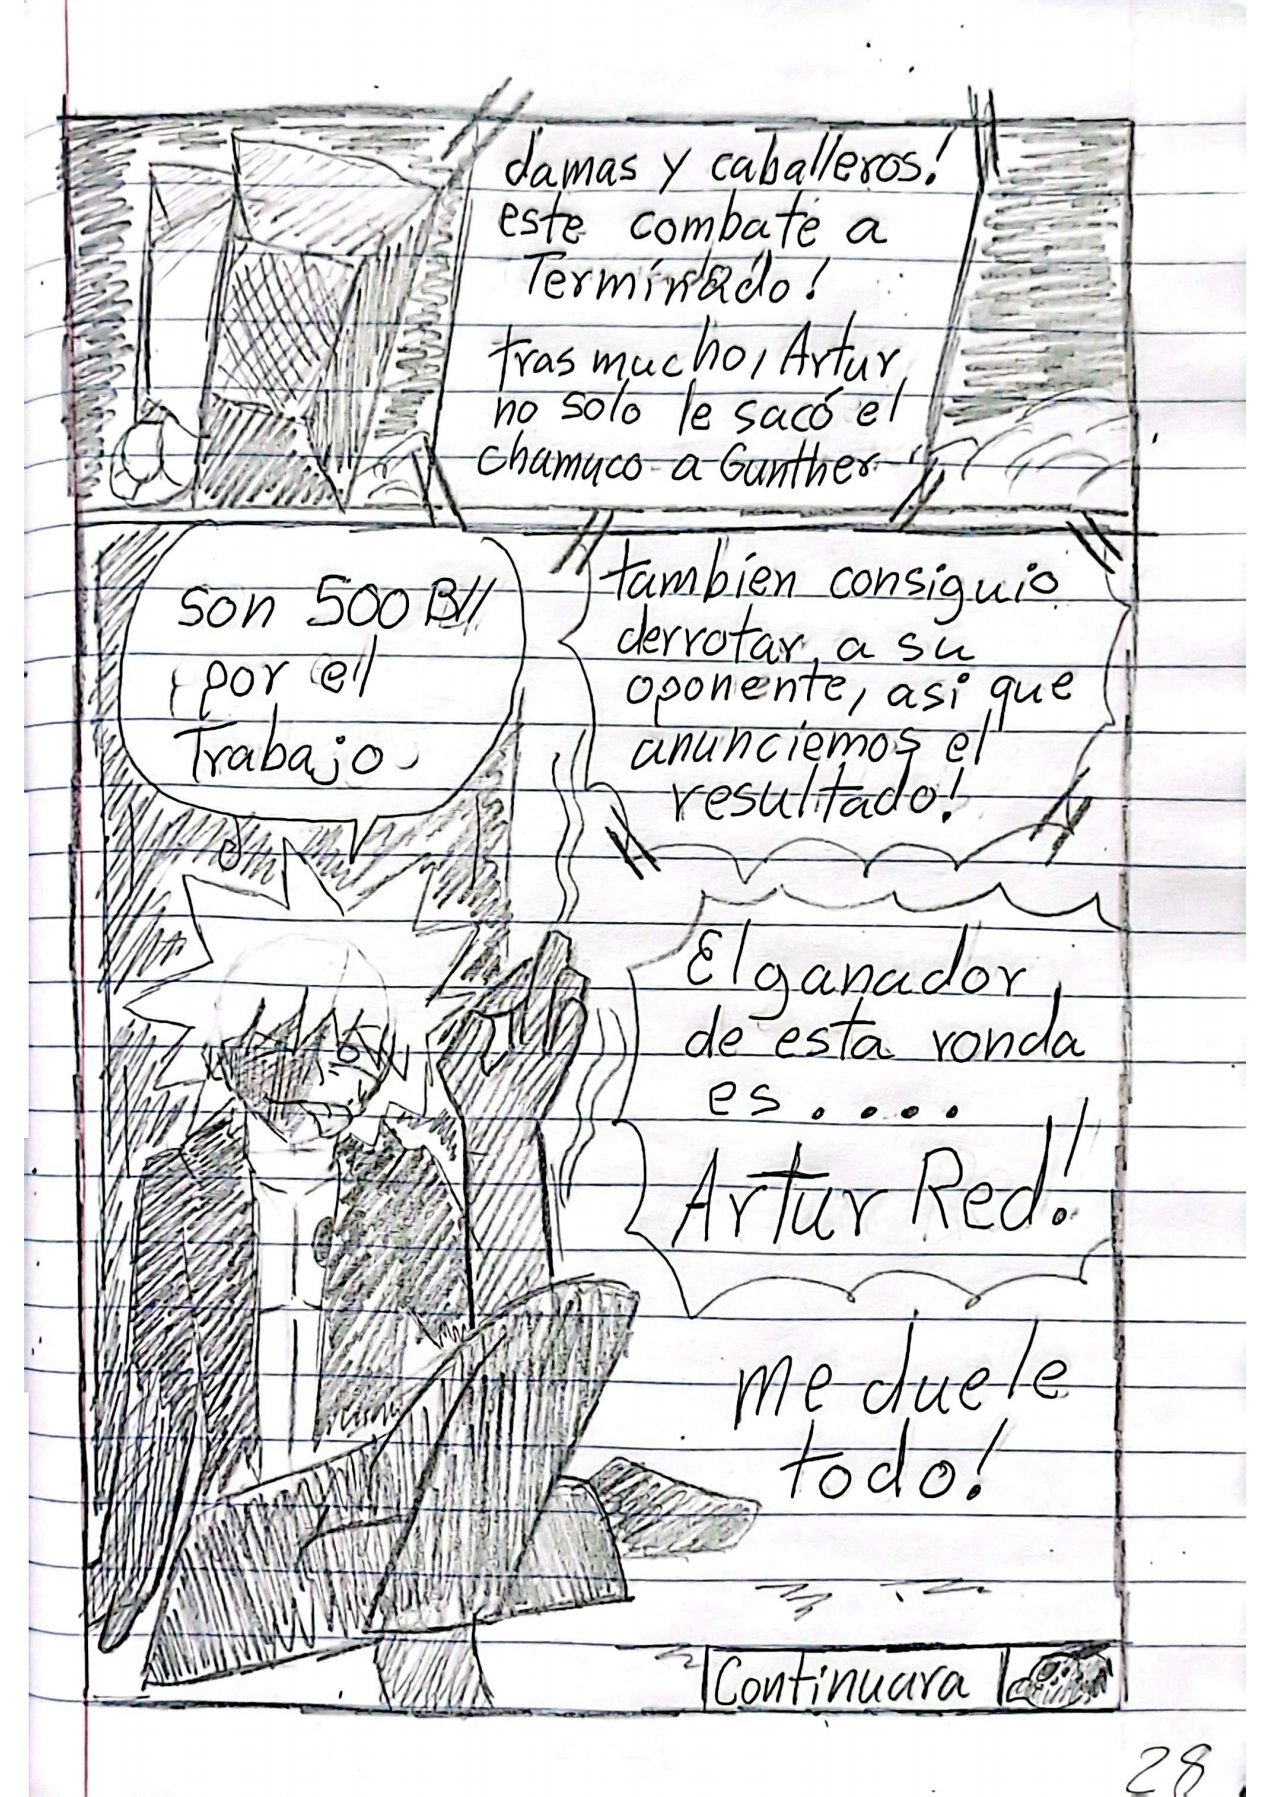 damas y caballeros!
este combate a
Terminado!
tras mucho, Artur
no solo le sacó el
chamuco a Gunther
son 500 B//
por el
Trabajo
tambien consiguio
derrotar a su
oponente, asi que
anunciemos el
resultado!
El ganador
de esta ronda
es.....
Artur Red!
me duele
todo!
Continuara
28